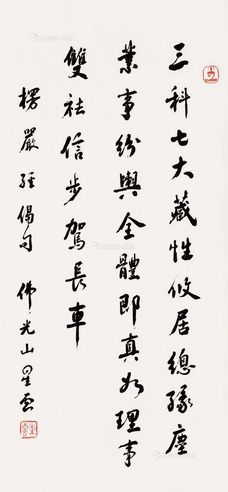 三科七大藏性攸居總緣塵
業事紛輿全體即真如理事
雙祛信步駕長車
楞嚴經偈句 佛光山星雲